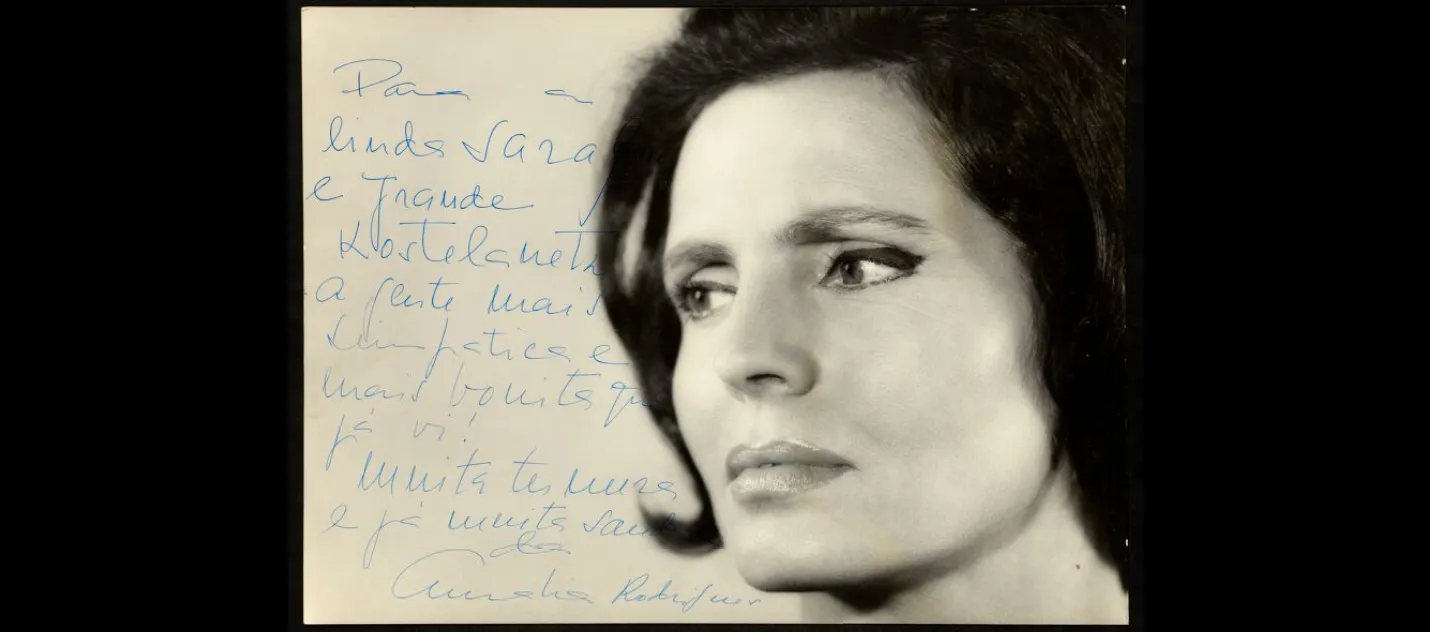 Para a
linda Sara
e grande
Kostelanetz
a gente mais
simpatica e
mais bonita que
já vi!
Muita ternura
e já muita sau
da
Amalia Rodrigues